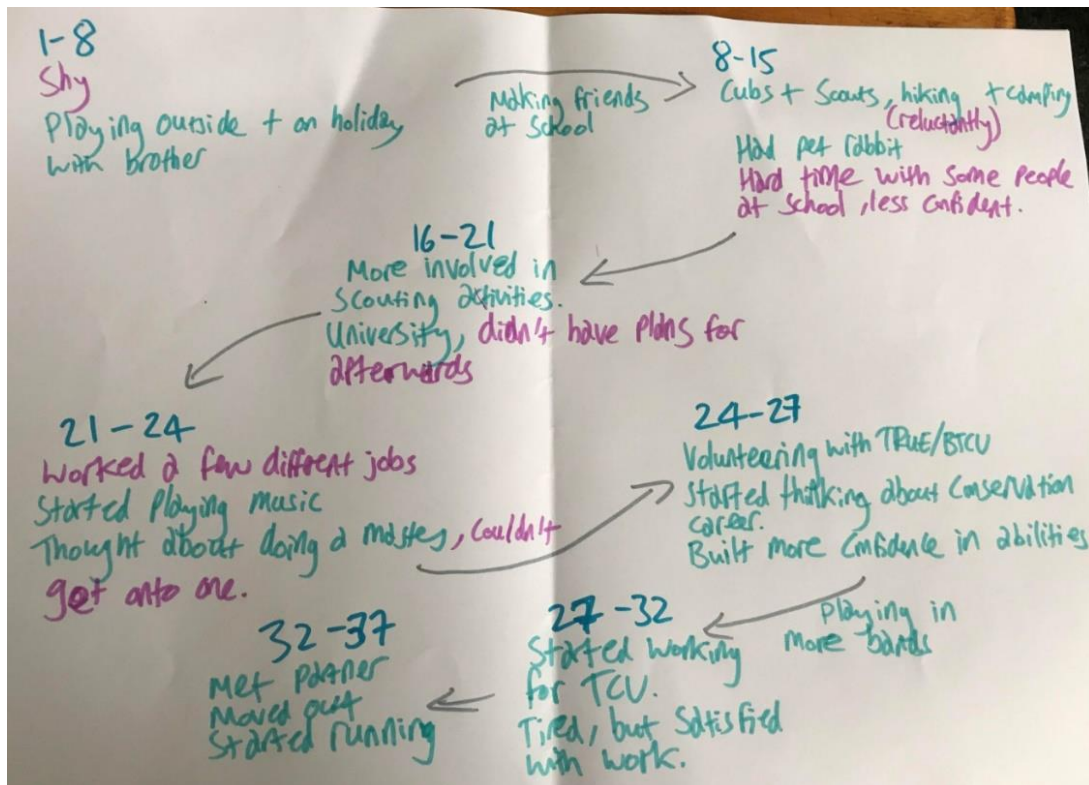 1-8
Shy
Playing outside + on holiday
with brother
Making friends
at School
8-15
Cubs + Scouts, hiking + camping
(reluctantly)
Had pet rabbit
Hard time with some people
at school, less confident.
16-21
More involved in
Scouting activities.
University, didn't have plans for
afterwards
21-24
Worked a few different jobs
Started playing music
Thought about doing a masters, couldn't
get onto one.
24-27
Volunteering with TRUE/BTCV
Started thinking about conservation
career.
Built more confidence in abilities
Playing in
more bands
27-32
Started working
for TCV.
Tired, but satisfied
with work.
32-37
Met partner
Moved out
Started running